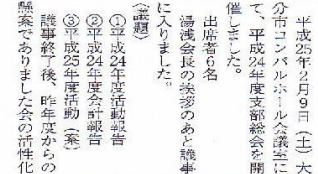 平成25年2月9日（土）大
分市コンパルホール会議室に
て、平成24年度支部総会を開
催しました。
出席者6名
湯浅会長の挨拶のあと議事
に入りました。
〈議題〉
①平成24年度活動報告
②平成24年度会計報告
③平成25年度活動（案）
議事終了後、昨年度からの
懸案でありました会の活性化